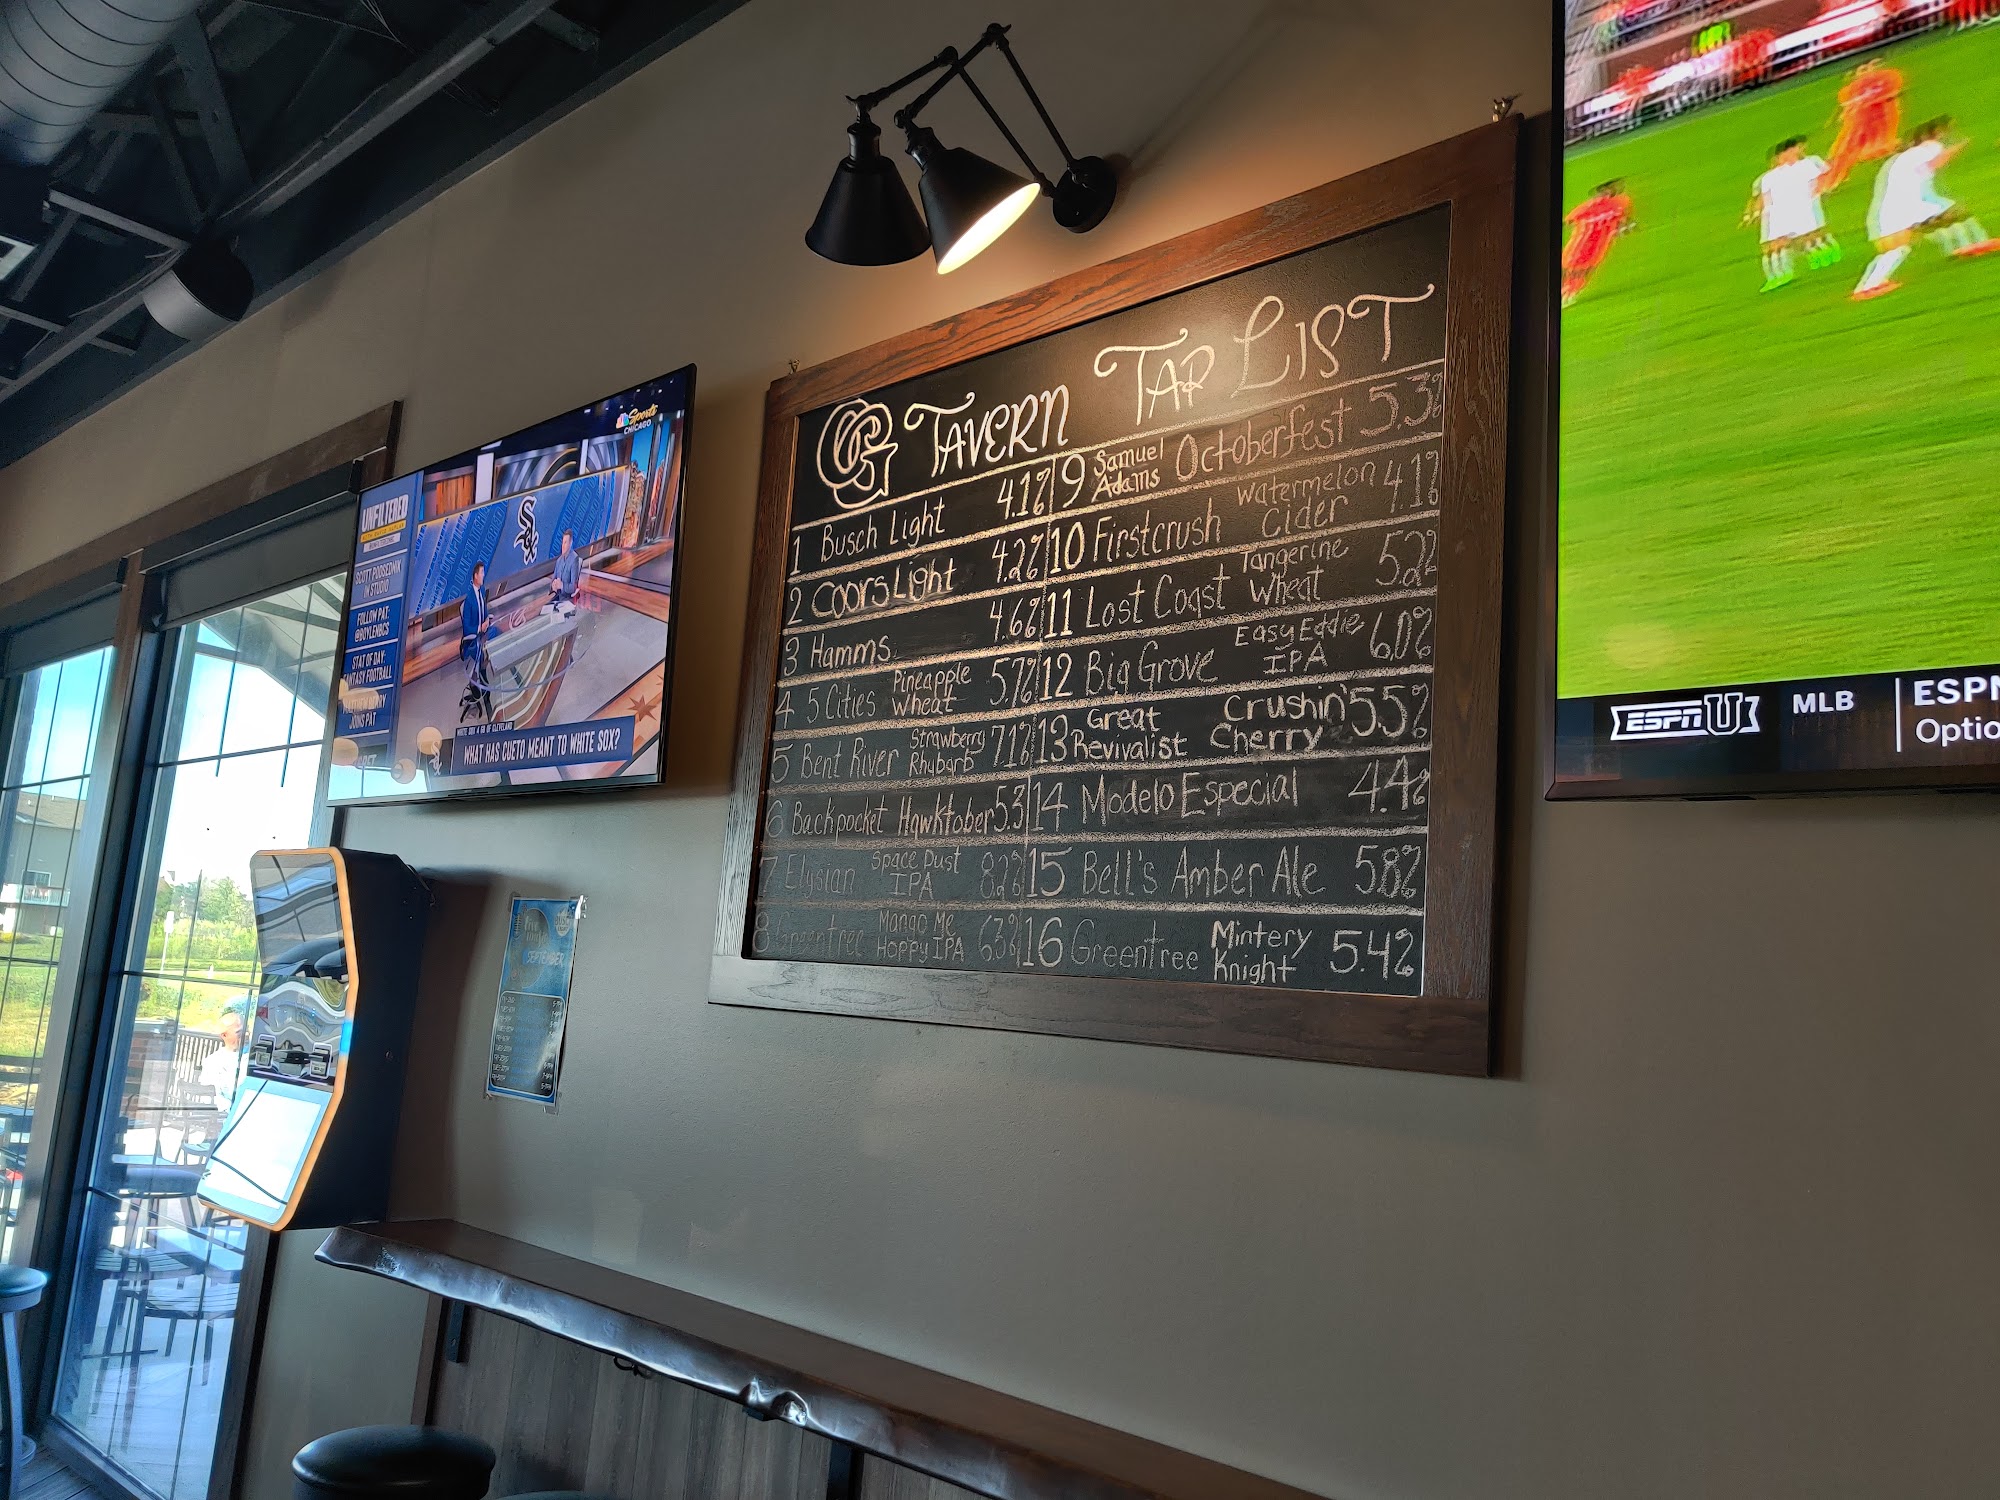 Sports
CHICAGO
UNFILTERED
SCOTT PODSEDNIK
IN STUDIO
FOLLOW PAT:
@BOYLENBCS
STAT OF DAY:
FANTASY FOOTBALL
JOINS PAT
Sox
WHAT HAS CUETO MEANT TO WHITE SOX?
CG TAVERN TAP LIST
1 Busch Light 4.1%
2 Coors Light 4.2%
3 Hamms 4.6%
4 5 Cities Pineapple Wheat 5.7%
5 Bent River Strawberry Rhubarb 7.1%
6 Backpocket Hawktober 5.3
7 Elysian Space Dust IPA 8.2%
8 Greentree Mango Me Hoppy IPA 6.3%
9 Samuel Adams Octoberfest 5.3%
10 Firstcrush Watermelon Cider 4.1%
11 Lost Coast Tangerine Wheat 5.2%
12 Big Grove Easy Eddie IPA 6.0%
13 Great Revivalist Crushin' Cherry 5.5%
14 Modelo Especial 4.4%
15 Bell's Amber Ale 5.8%
16 Greentree Mintery Knight 5.4%
SEPTEMBER
ESPN U
MLB
ESPN
Optio